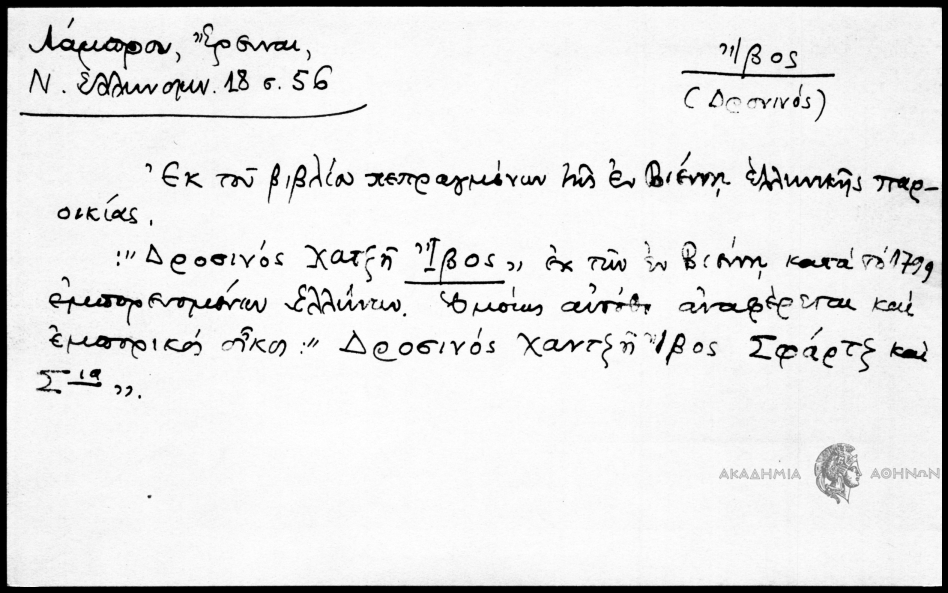 Λάμπρου, Ἔρευναι,
Ν. Ἑλληνομν. 18 σ. 56
Ἴβος
(Δροσινός)
Ἐκ τοῦ βιβλίου πεπραγμένων τῆς ἐν Βιέννῃ ἑλληνικῆς παρ-
οικίας.
:" Δροσινός Χατζῆ Ἴβος,, ἐκ τῶν ἐν Βιέννῃ κατά τό 1799
ἐμπορευομένων Ἑλλήνων. Ὁμοίως αὐτόθι ἀναφέρεται καί
ἐμπορικός οἶκος :" Δροσινός Χαντζῆ Ἴβος Σφάρτζ καί
Σια ,,.
ΑΚΑΔΗΜΙΑ ΑΘΗΝΩΝ